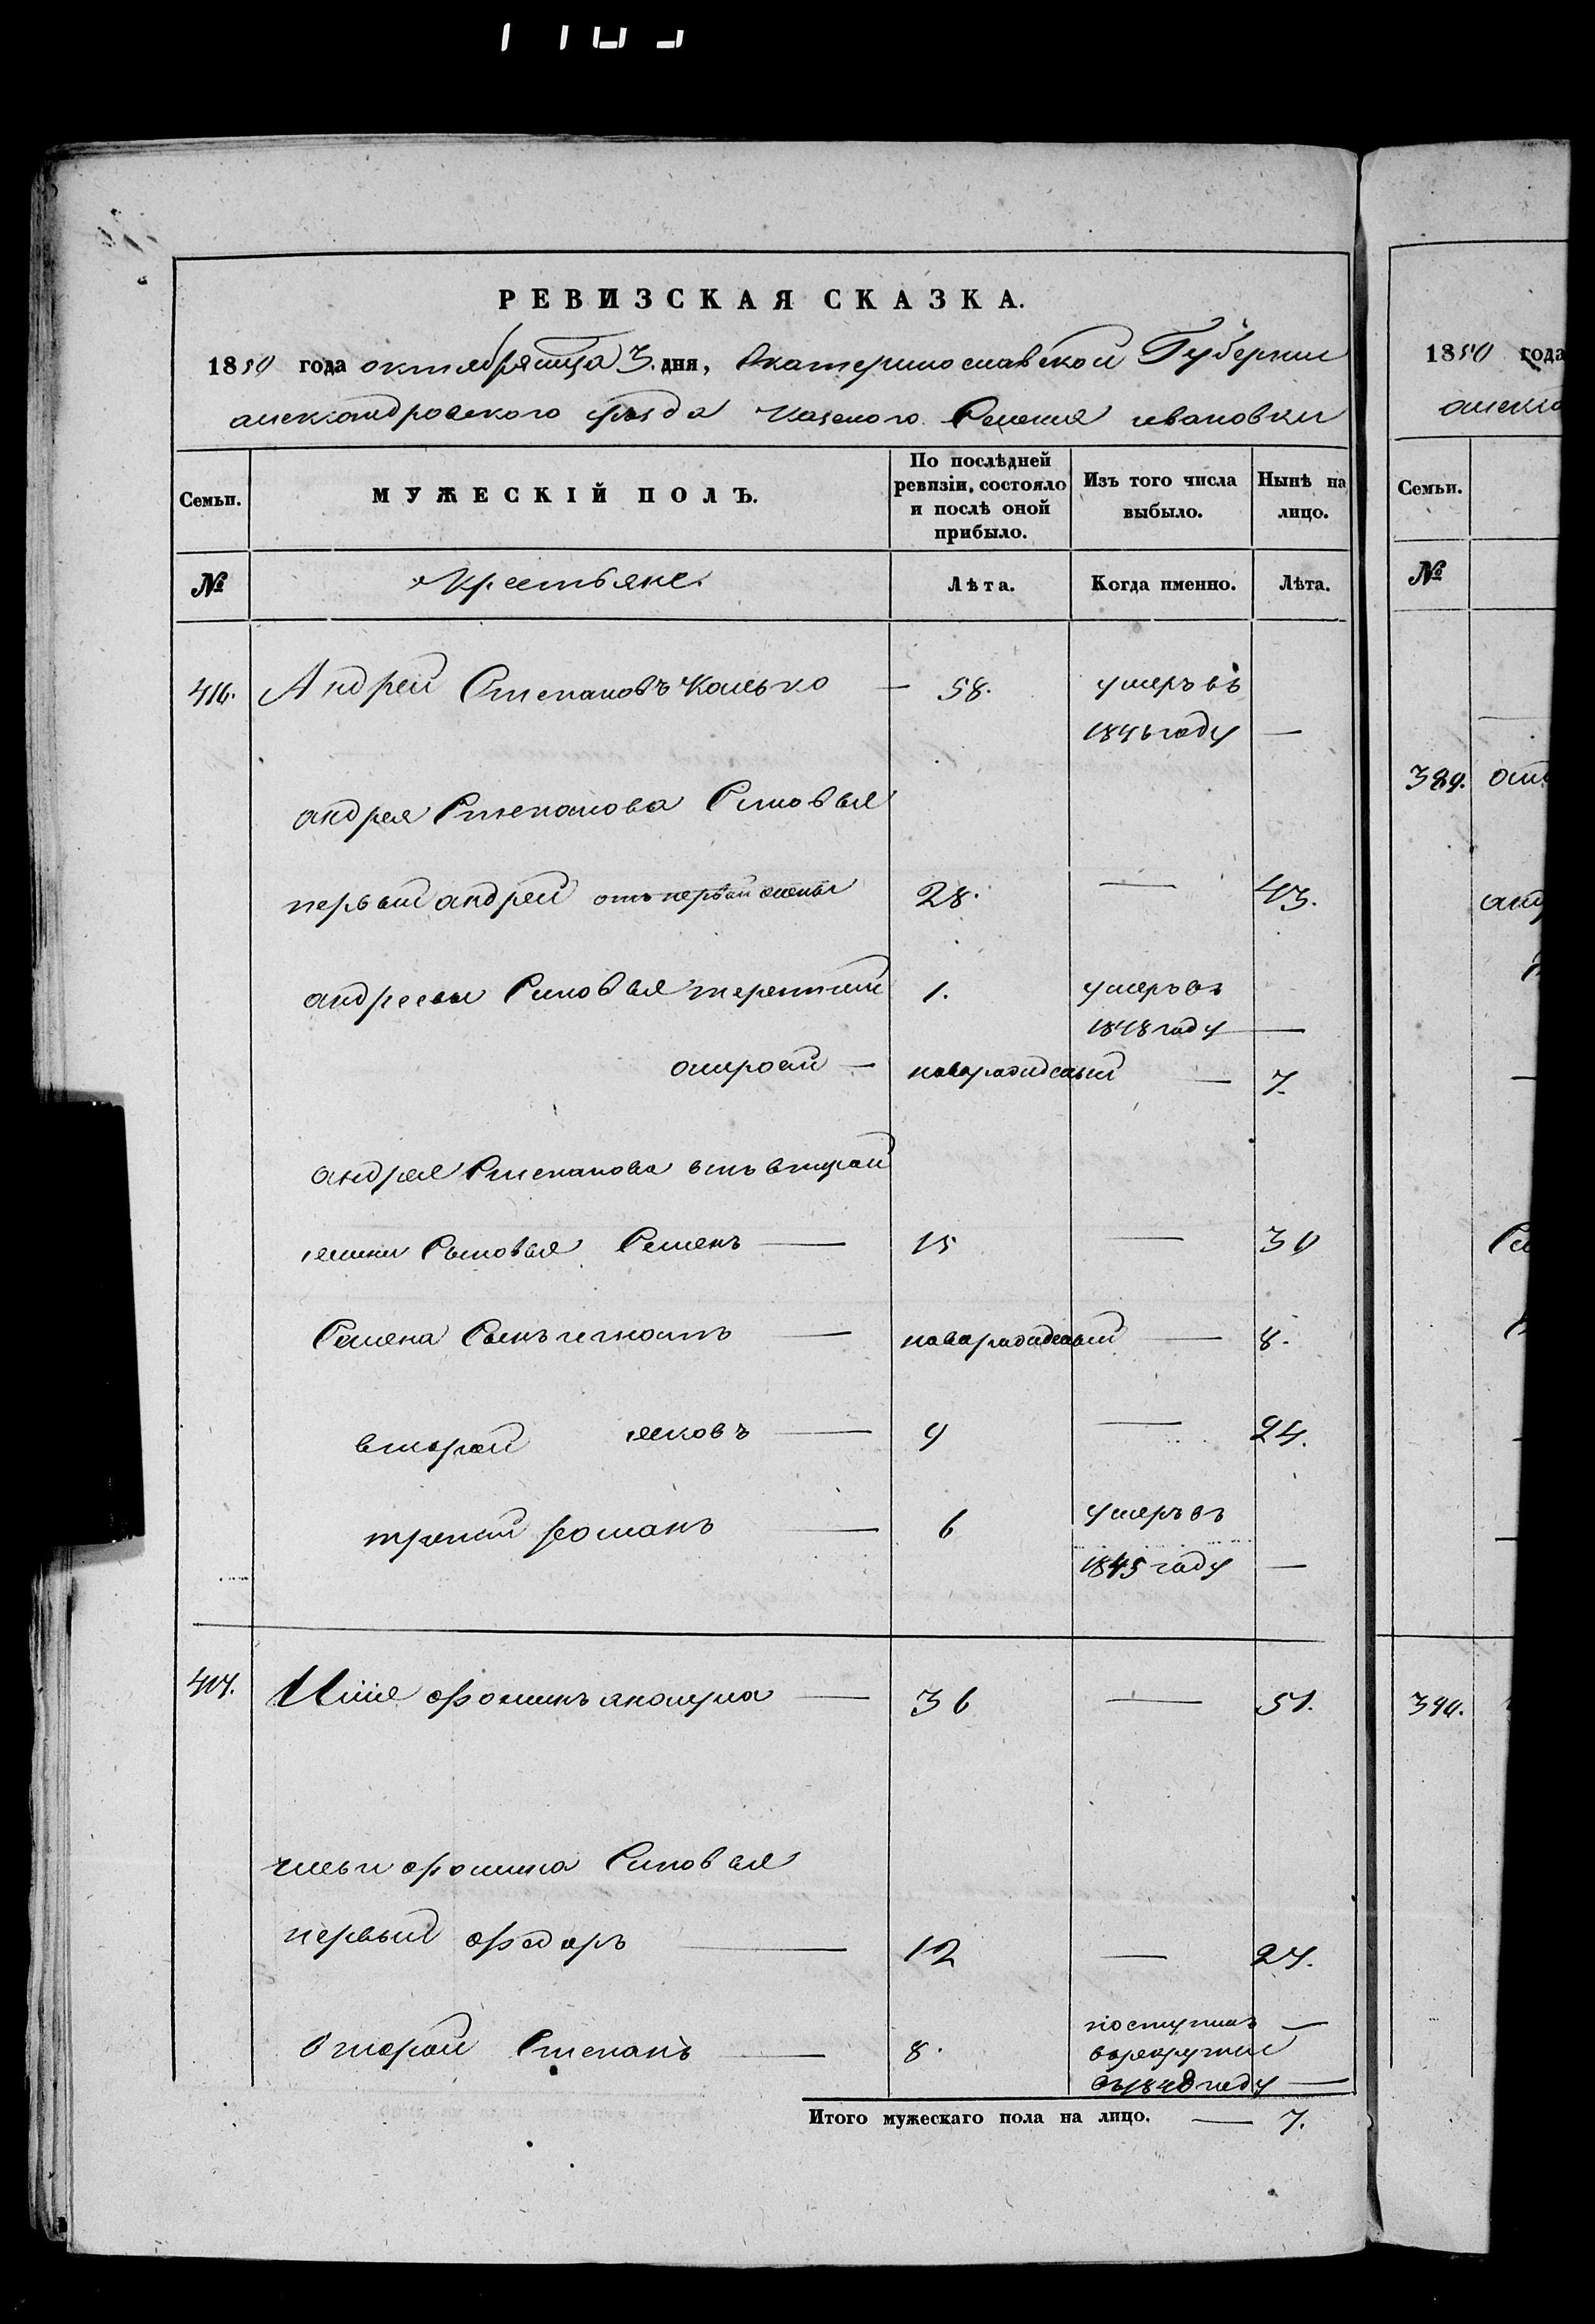 РЕВИЗСКАЯ СКАЗКА.
1850 года октября мца 3. дня, Екатеринославской Губернии
александровского уезда казеного Селения ивановки
Семьи. МУЖЕСКІЙ ПОЛЪ. По послѣдней ревизіи, состояло и послѣ оной прибыло. Изъ того числа выбыло. Нынѣ на лицо.
№ Крестьяне. Лѣта. Когда именно. Лѣта.
416. Андрей Степановъ Колько — 58. умеръ въ
1846 году —
андрея Степанова Синовья
первый андрей отъ первой жены 28. — 43.
андреевы Синовья терентий 1. умеръ въ
1848 году —
новорожденый — 7.
андрея Степанова отъ второй
жены Сыновья Семенъ — 15 — 30
Семена Сынъ игнатъ — новорожденый — 8.
второй яковъ — 9 — 24.
третий романъ — 6 умеръ въ
1845 году —
417. Илія фоминъ — 36 — 51.
ильи фомина Синовья
первый федоръ — 12 — 27.
второй Степанъ — 8. поступилъ —
въ рекруты
въ 1848 году —
Итого мужескаго пола на лицо. — 7.
1850 года
Семьи.
№
389.
390.